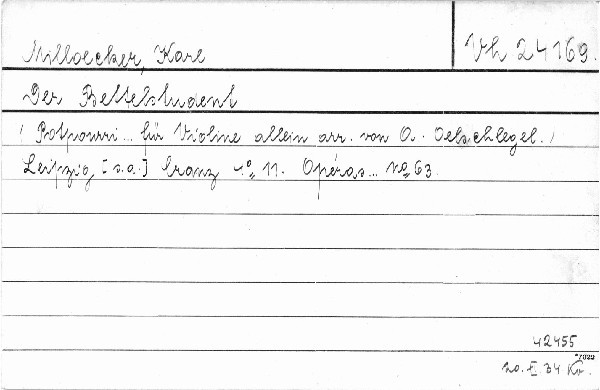 Milloecker, Karl
Vh 24169.
Der Bettelstudent
(Potpourri... für Violine allein arr. von A. Oelschlegel.)
Leipzig [s.a.] Cranz 4° 11. Opéras... No 63.
42455
20. II. 34 Kv.